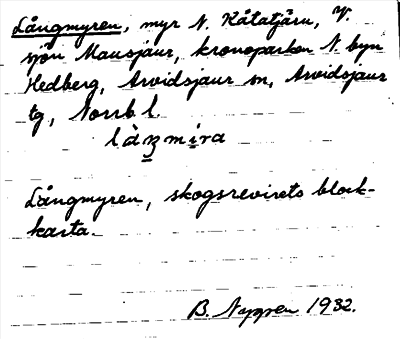 Långmyren, myr N. Kåtatjärn, V.
sjön Mausjaur, kronoparken N. byn
Hedberg, Arvidsjaur sn, Arvidsjaur
tg, Norrb l.
Långmyren, skogsrevirets block-
karta.
B. Nygren 1932.